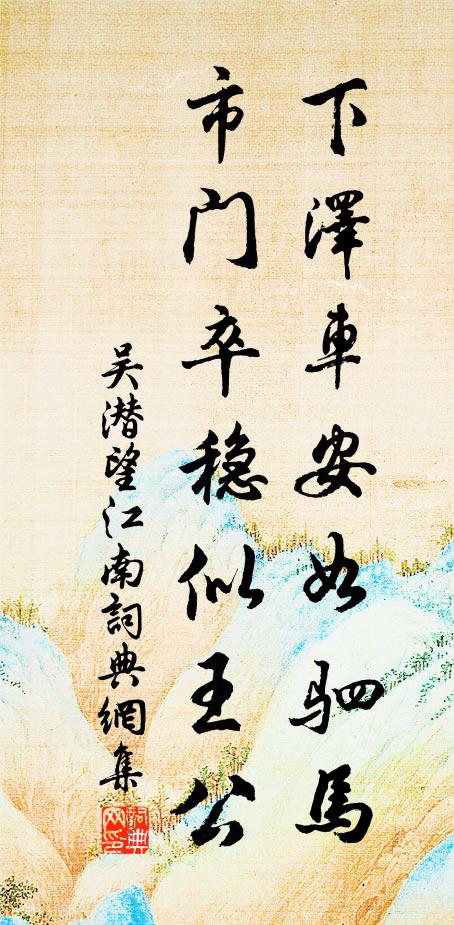 下澤車安如驷馬
市门卒穏似王公
吴潜望江南詞典網集
詞典網印